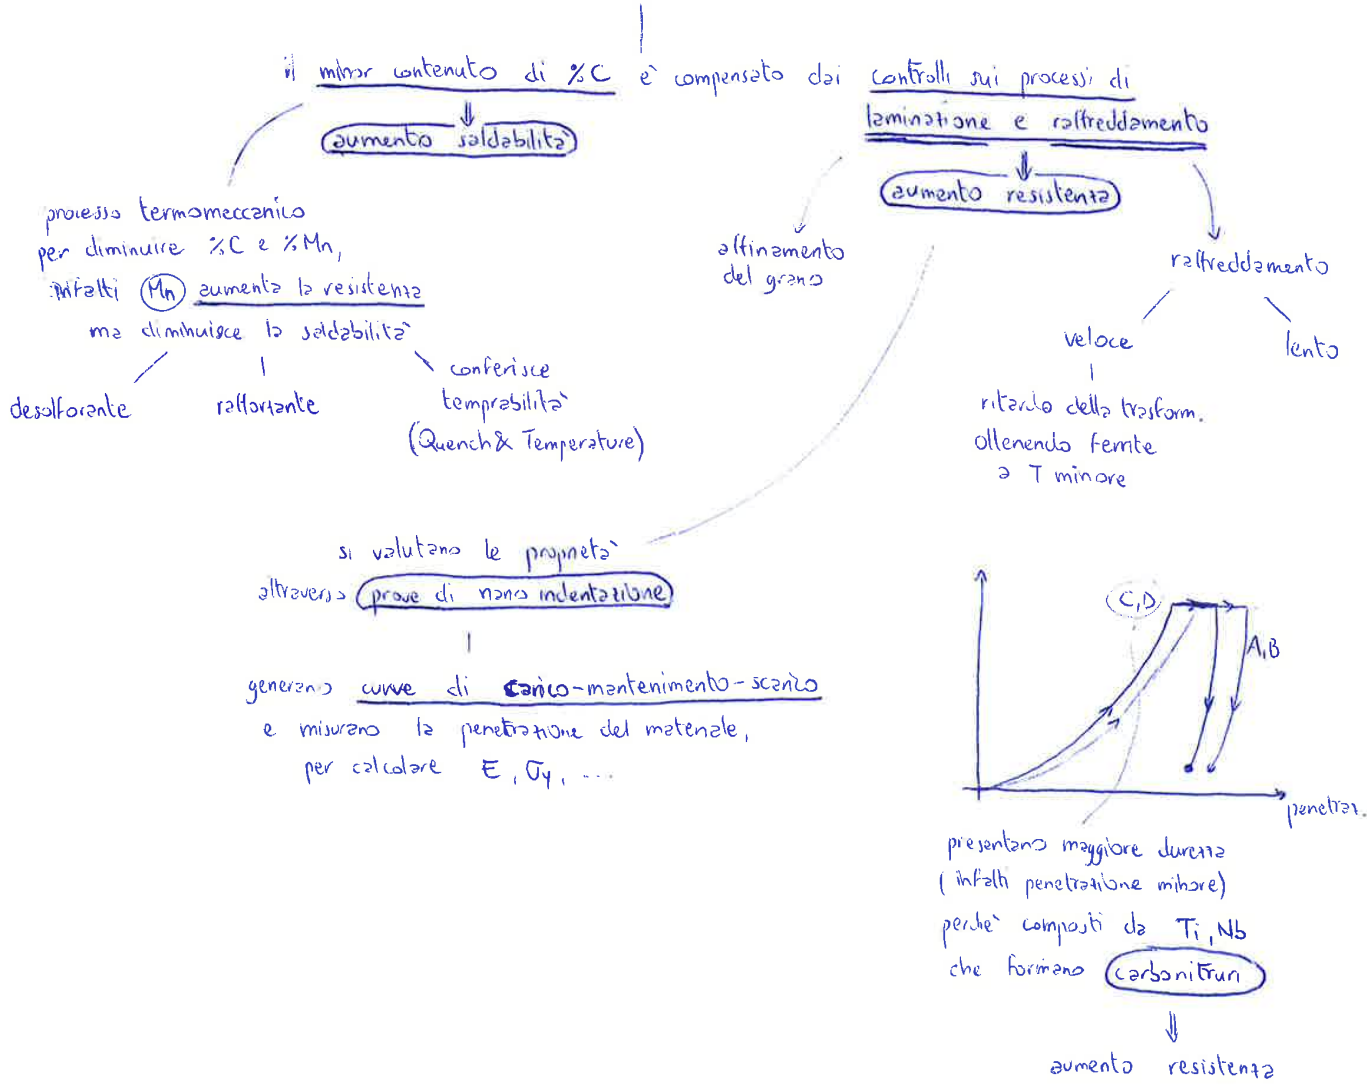 il minor contenuto di %C è compensato dai controlli sui processi di
laminazione e raffreddamento
aumento saldabilità
aumento resistenza
processo termomeccanico
per diminuire %C e %Mn,
infatti Mn aumenta la resistenza
ma diminuisce la saldabilità
desolforante
rafforzante
conferisce
temprabilità
(Quench & Temperature)
affinamento
del grano
raffreddamento
veloce
lento
ritardo della trasform.
ottenendo ferrite
a T minore
si valutano le proprietà
attraverso prove di nano indentazione
generano curve di carico-mantenimento-scarico
e misurano la penetrazione del materiale,
per calcolare E, σy, ...
C,D
A,B
penetraz.
presentano maggiore durezza
(infatti penetrazione minore)
perchè composti da Ti, Nb
che formano carbonitruri
aumento resistenza